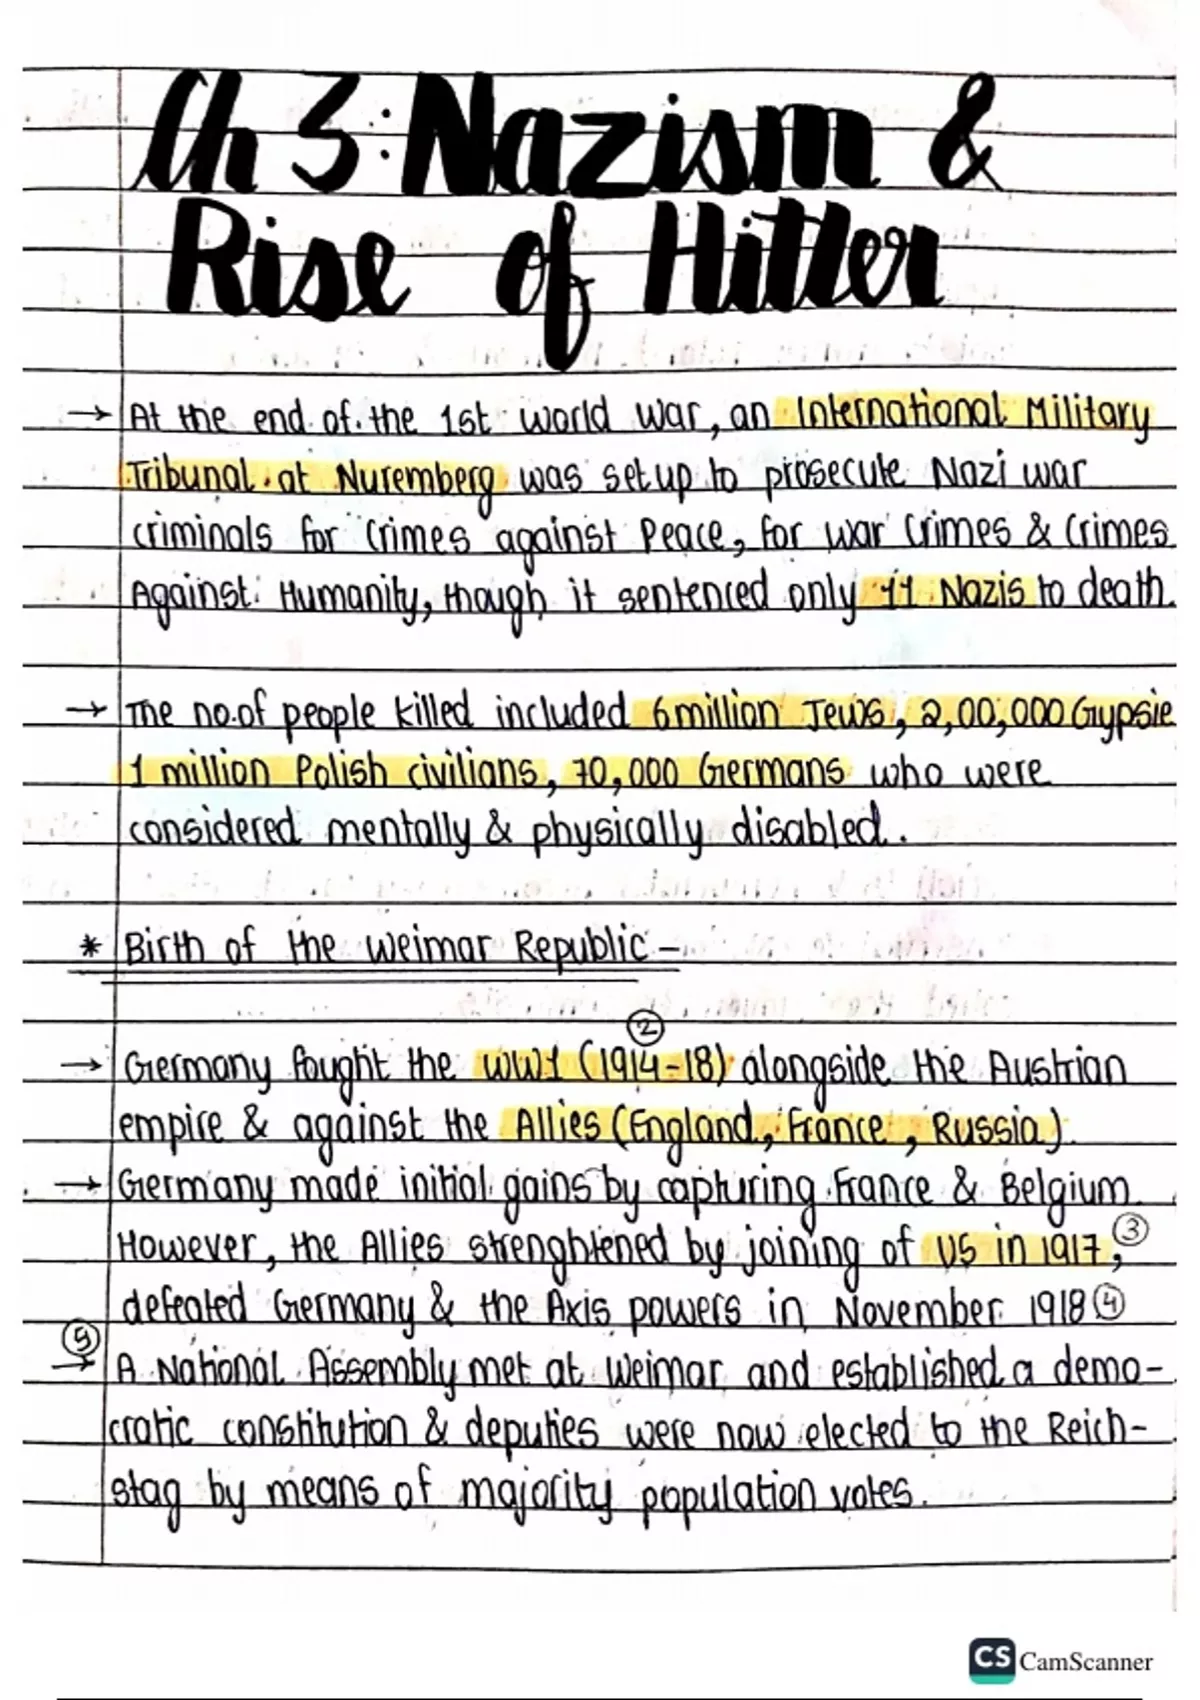 Ch 3: Nazism &
Rise of Hitler
→ At the end of the 1st world war, an International Military
Tribunal at Nuremberg was set up to prosecute Nazi war
criminals for Crimes against Peace, for war Crimes & Crimes
Against Humanity, though it sentenced only 11 Nazis to death.
→ The no. of people killed included 6 million Jews, 2,00,000 Gypsie
1 million Polish civilians, 70,000 Germans who were
considered mentally & physically disabled.
* Birth of the Weimar Republic -
②
→ Germany fought the WW1 (1914-18) alongside the Austrian
empire & against the Allies (England, France, Russia).
→ Germany made initial gains by capturing France & Belgium.
However, the Allies strenghtened by joining of US in 1917, ③
defeated Germany & the Axis powers in November 1918 ④
⑤ → A National Assembly met at Weimar and established a demo-
cratic constitution & deputies were now elected to the Reich-
stag by means of majority population votes.
CS CamScanner